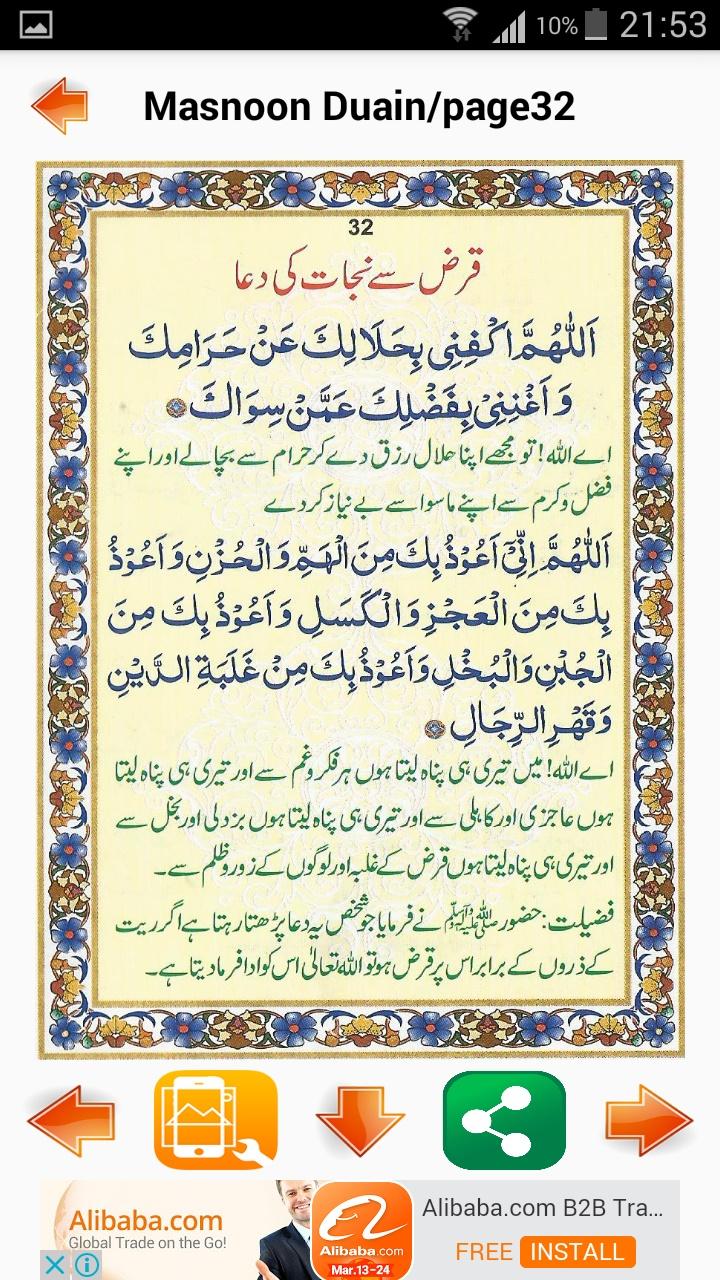 10% 21:53
Masnoon Duain/page32
32
قرض سے نجات کی دعا
اَللّٰهُمَّ اكْفِنِی بِحَلَالِكَ عَنْ حَرَامِكَ
وَ اَغْنِنِیْ بِفَضْلِكَ عَمَّنْ سِوَاكَ
اے اللہ! تو مجھے اپنا حلال رزق دے کر حرام سے بچالے اور اپنے
فضل و کرم سے اپنے ماسوا سے بے نیاز کر دے
اَللّٰهُمَّ اِنِّیْٓ اَعُوْذُ بِكَ مِنَ الْهَمِّ وَ الْحُزْنِ وَ اَعُوْذُ
بِكَ مِنَ الْعَجْزِ وَ الْكَسَلِ وَ اَعُوْذُ بِكَ مِنَ
الْجُبْنِ وَ الْبُخْلِ وَ اَعُوْذُ بِكَ مِنْ غَلَبَةِ الدَّيْنِ
وَ قَهْرِ الرِّجَالِ
اے اللہ! میں تیری ہی پناہ لیتا ہوں ہر فکر و غم سے اور تیری ہی پناہ لیتا
ہوں عاجزی اور کاہلی سے اور تیری ہی پناہ لیتا ہوں بزدلی اور بخل سے
اور تیری ہی پناہ لیتا ہوں قرض کے غلبہ اور لوگوں کے زور و ظلم سے۔
فضیلت: حضور ﷺ نے فرمایا جو شخص یہ دعا پڑھتا رہتا ہے اگر ریت
کے ذروں کے برابر اس پر قرض ہو تو اللہ تعالیٰ اس کو ادا فرما دیتا ہے۔
Alibaba.com
Global Trade on the Go!
Alibaba.com
Mar.13-24
Alibaba.com B2B Tra...
FREE INSTALL